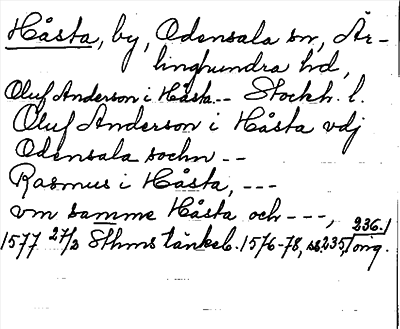 Håsta, by, Odensala sn, Är-
linghundra hd,
Oluf Anderson i Håsta -- Stockh. l.
Oluf Anderson i Håsta vdj
Odensala sochn --
Rasmus i Håsta, ---
vm samme Håsta och ---,
1577 27/2 Sthms tänkeb. 1576-78, ss. 235, 236.1 orig.